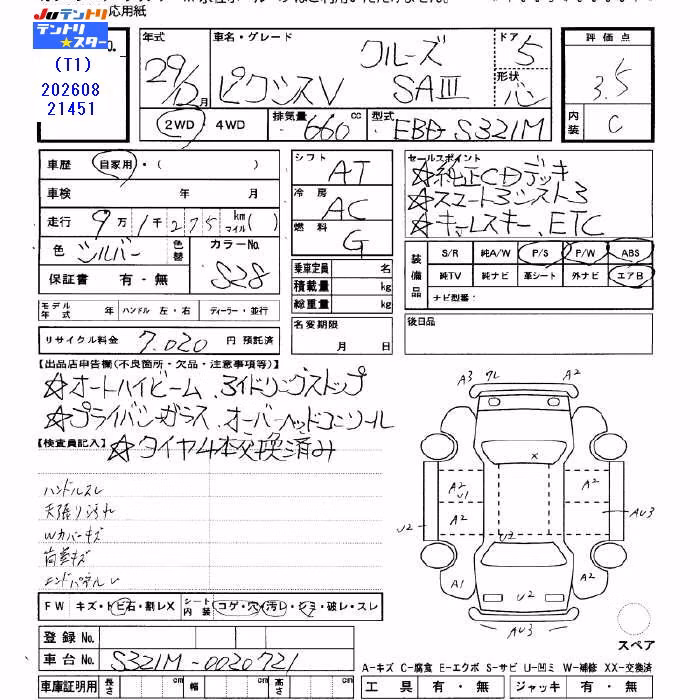 応用紙
Juテントリ
テントリ★スター
(T1)
202608
21451
年式 29/12月
車名・グレード クルーズ
ピクシスV SAⅢ
ドア 5
形状 バン
評価点 3.5
内装 C
2WD ・ 4WD 排気量 660 cc 型式 EBD-S321M
車歴 自家用・( )
車検 年 月
走行 9万1千275 km マイル( )
色 シルバー 色替 カラーNo. S28
保証書 有・無
シフト AT
冷房 AC
燃料 G
乗車定員 名
積載量 kg
総重量 kg
セールスポイント
☆純正CDデッキ
☆スマートアシスト3
☆キーレスキー、ETC
装備品 S/R 純A/W P/S P/W ABS
純TV 純ナビ 革シート 外ナビ エアB
ナビ型番：
モデル年式 年 ハンドル 左・右 ディーラー・並行
リサイクル料金 7,020 円 預託済
名変期限 月 日
後日品
【出品店申告欄(不良箇所・欠品・注意事項等)】
☆オートハイビーム、アイドリングストップ
☆プライバシーガラス、オーバーヘッドコンソール
【検査員記入】 ☆タイヤ4本交換済み
ハンドルスレ
天張り汚れ
Wカバーキズ
荷室キズ
エンドパネルU
FW キズ・トビ石・割レX シート内装 コゲ・穴・汚レ・シミ・破レ・スレ
登録No.
車台No. S321M-0020721
車庫証明用 長さ cm 幅 cm 高さ cm
A3 ワレ A2
A2 A2
X
A2 U1 A2
A2
U2 U2 AU3
A1 A2
U2
AU3
スペア
A-キズ C-腐食 E-エクボ S-サビ U-凹ミ W-補修 XX-交換済
工具 有・無 ジャッキ 有・無